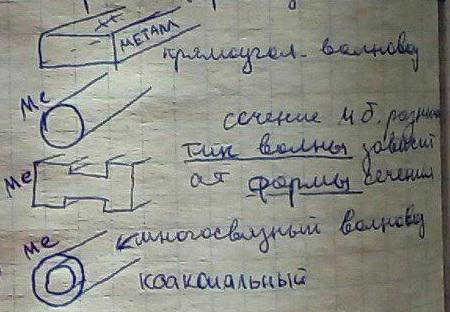 МЕТАЛЛ
прямоугол. волновод
Ме
сечение м.б. разным
тип волны зависит
Ме
от формы сечения
Ме
многосвязный волновод
коаксиальный